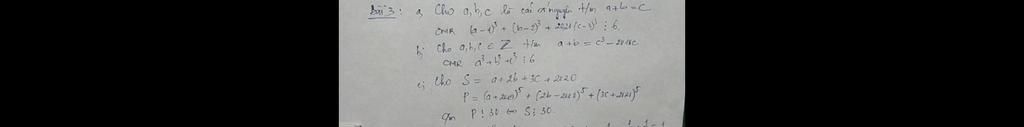 Bài 3: a, Cho a,b,c là các số nguyên t/m a+b=c
CMR (a-1)³ + (b-2)³ + 2021(c-3)³ ⋮ 6
b, Cho a,b,c ∈ Z t/m a+b = c³ - 2018c
CMR a³+b³+c³ ⋮ 6
c, Cho S = a+2b+3c+2020
P = (a+2021)⁵ + (2b-2022)⁵ + (3c+2021)⁵
P ⋮ 30 ⇔ S ⋮ 30